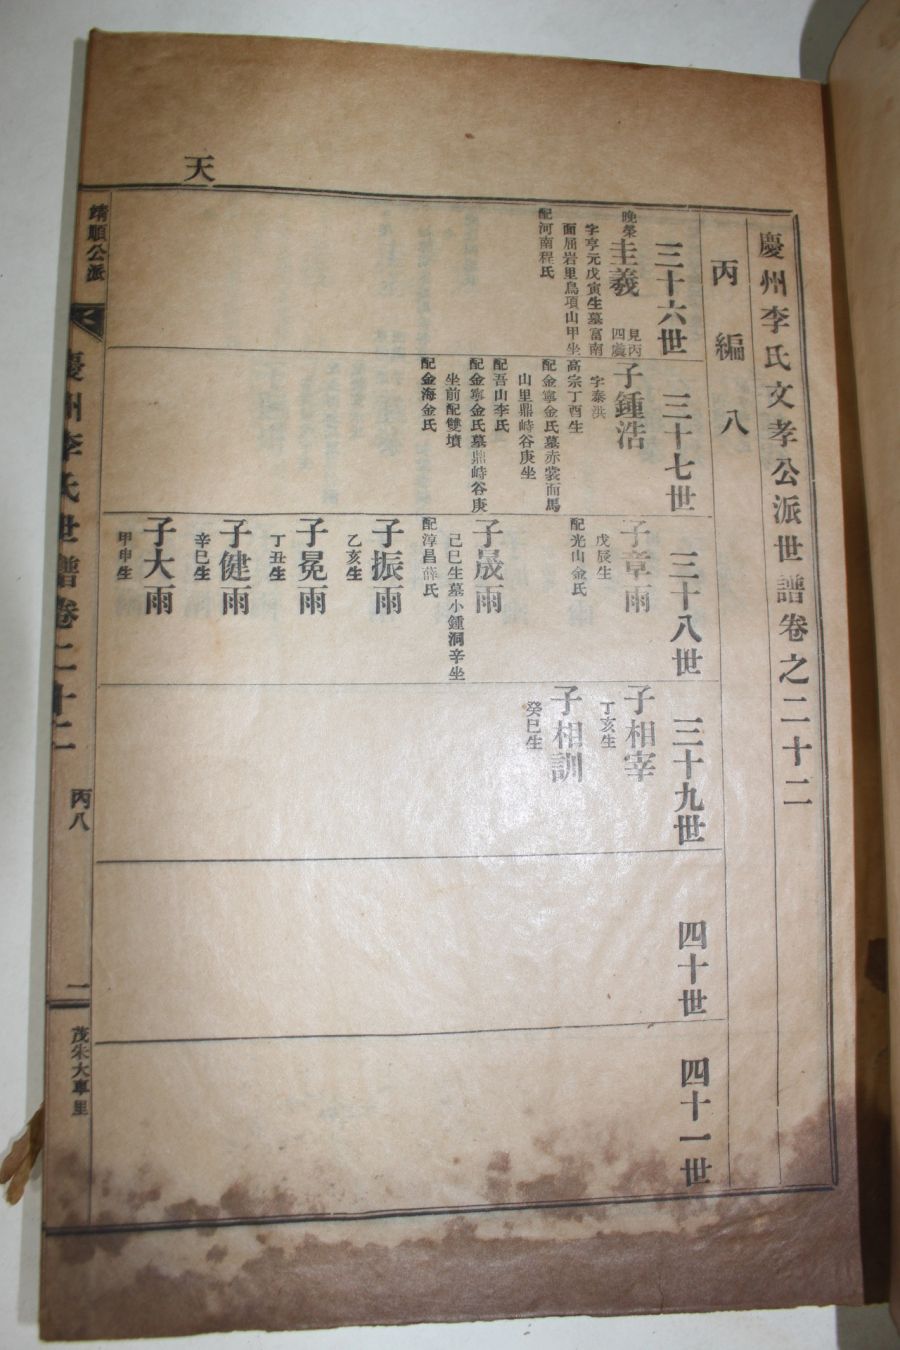 天
慶州李氏文孝公派世譜卷之二十二
丙編 八
三十六世
晚榮
圭羲
見丙
四虞
字亨元戊寅生墓富南
面屑岩里鳥項山甲坐
配河南程氏
三十七世
子鍾浩
字泰洪
高宗丁酉生
配金寧金氏墓赤裳面馬
山里鼎峙谷庚坐
配吾山李氏
配金寧金氏墓鼎峙谷庚
坐前配雙墳
配金海金氏
三十八世
子章雨
戊辰生
配光山金氏
子晟雨
己巳生墓小鍾洞辛坐
配淳昌薛氏
子振雨
乙亥生
子冕雨
丁丑生
子健雨
辛巳生
子大雨
甲申生
三十九世
子相宰
丁亥生
子相訓
癸巳生
四十世
四十一世
靖順公派
慶州李氏世譜卷二十二
丙八
一
茂朱大車里